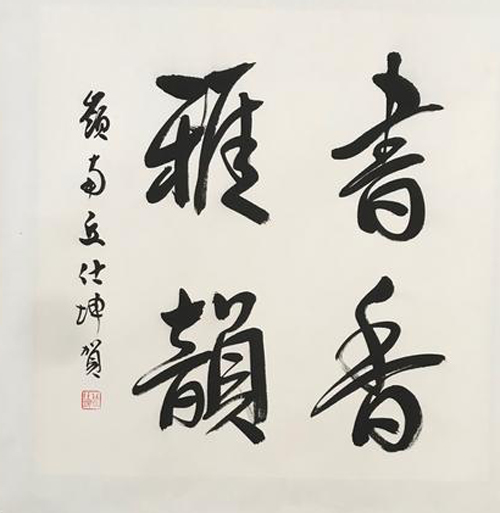 書香
雅韻
嶺南丘仕坤賀